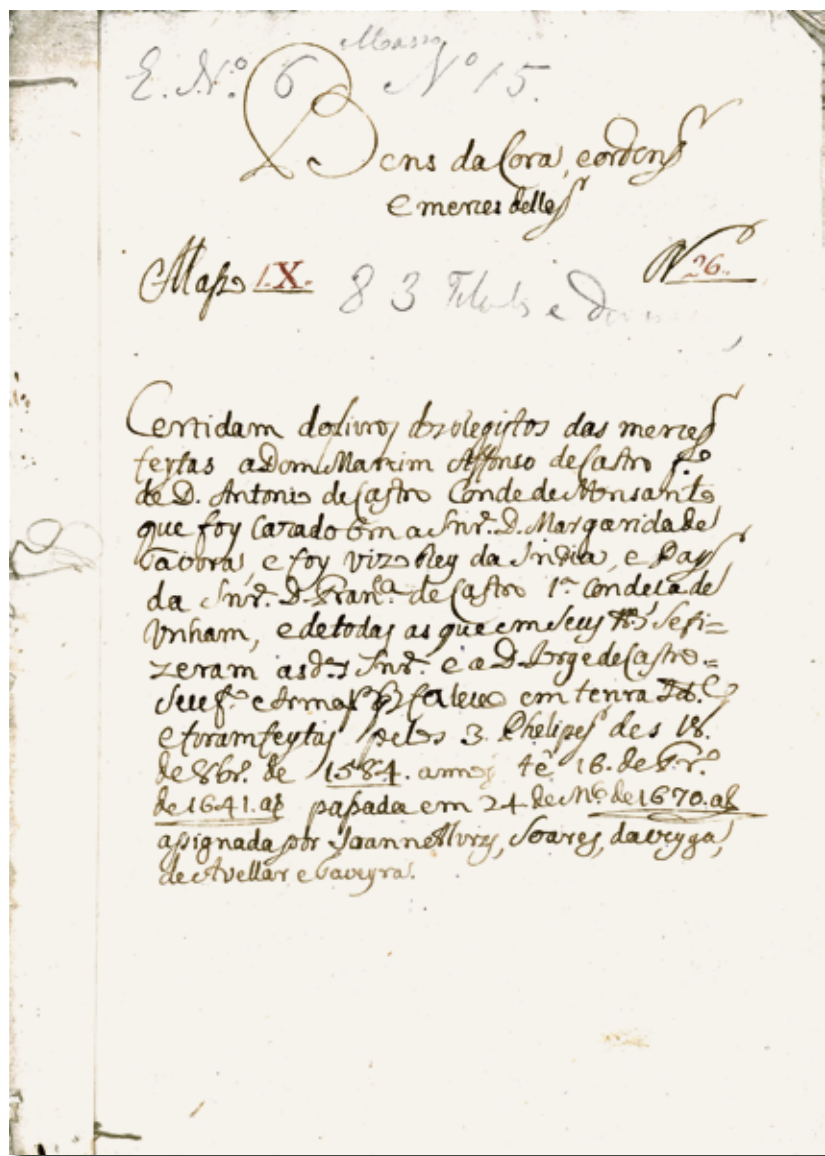 Masso
E. N.º 6 Nº 15.
Bens da Coroa, e ordens
e merces delles
Masso IX. N 26.
83 Titulos e
Certidam dos livros dos Registos das merces
feytas a Dom Martim Affonso de Castro f.º
de D. Antonio de Castro Conde de Monsanto
que foy Cazado com a Snr.ª D. Margarida de
Tavora, e foy Vizo Rey da India, e Pays
da Snr.ª D. Fran.ca de Castro 1.ª Condeça de
Unham, e de todas as que em seus se fi=
zeram as d.as Snr.ª e a D. Jorge de Castro =
seu f.º e Irmaõ q̃ faleceo em tenra Id.e
e foram feytas pelos 3 Phelipes des 18.
de 8br.º de 1584. annos té 16. de Fr.º
de 1641. as passada em 24 de M.ço de 1670. as
assignada por Joanne Alvrz, Soares, da Veyga,
de Avellar e Taveyra.